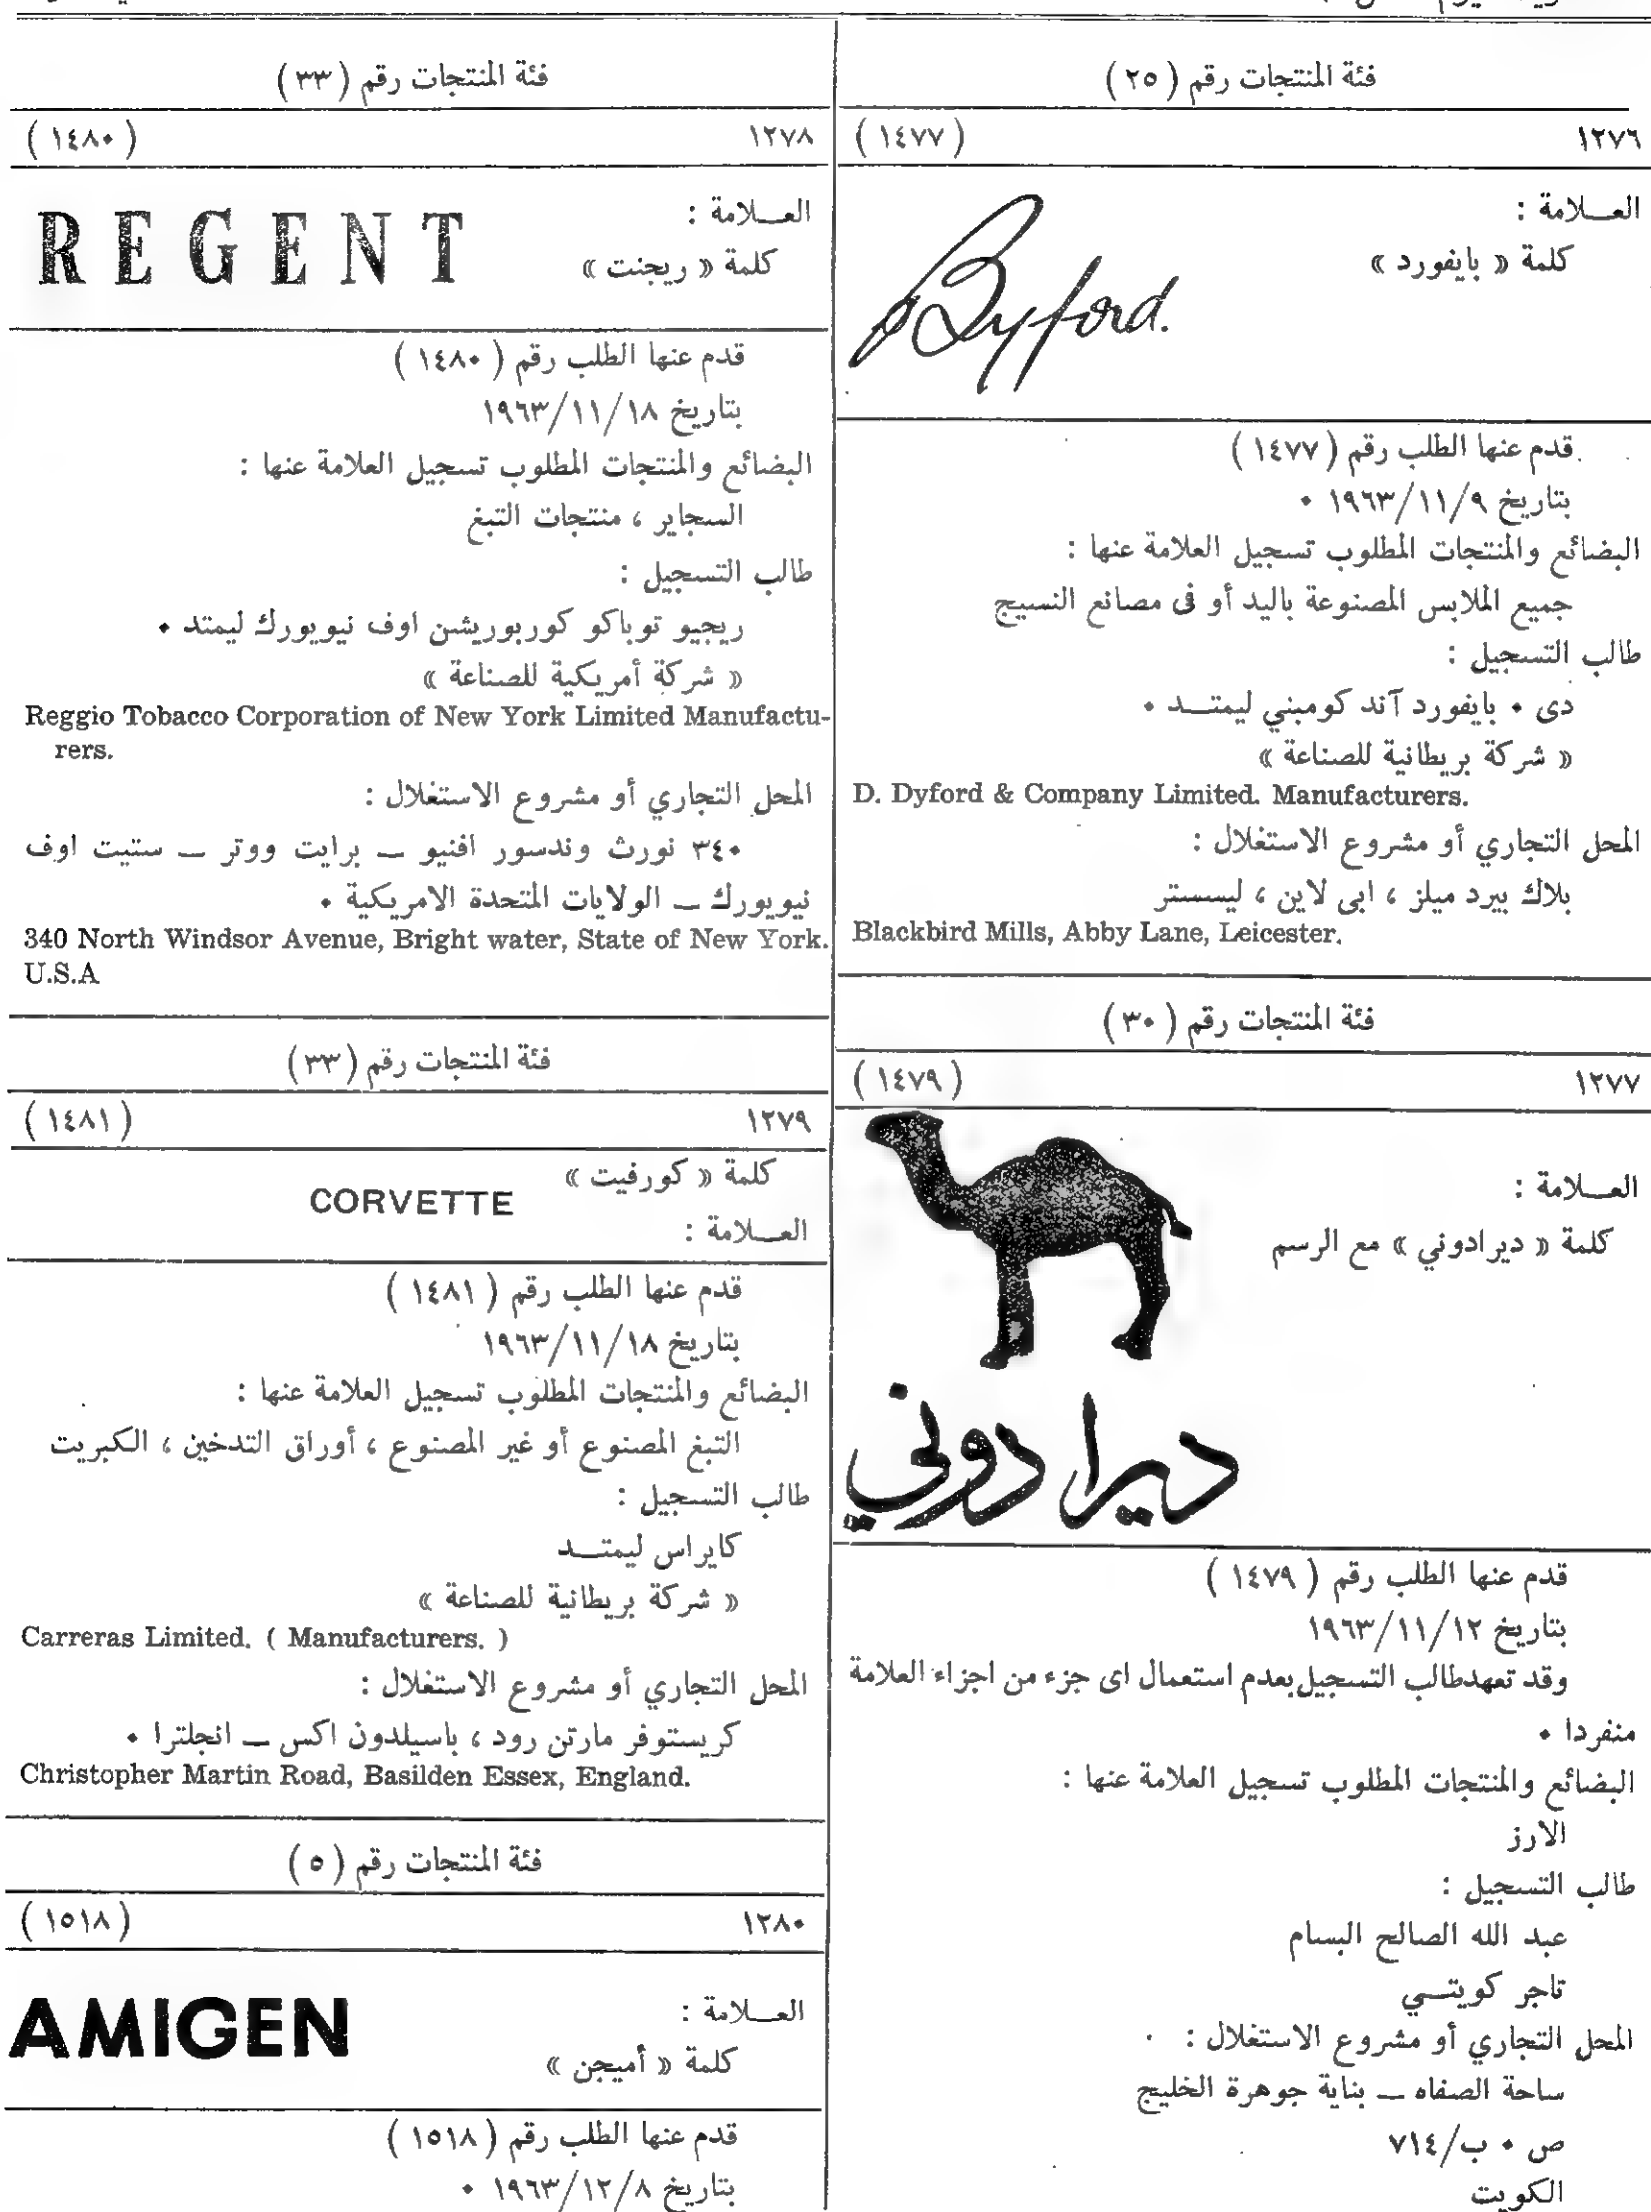 فئة المنتجات رقم ( ٢٥ )
١٢٧٦ ( ١٤٧٧ )
العـــلامة :
كلمة « بايفورد »
Byford.
قدم عنها الطلب رقم ( ١٤٧٧ )
بتاريخ ١٩٦٣/١١/٩ ٠
البضائع والمنتجات المطلوب تسجيل العلامة عنها :
جميع الملابس المصنوعة باليد أو فى مصانع النسيج
طالب التسجيل :
دى ٠ بايفورد آند كومبني ليمتـــد ٠
« شركة بريطانية للصناعة »
D. Dyford & Company Limited. Manufacturers.
المحل التجاري أو مشروع الاستغلال :
بلاك بيرد ميلز ، ابى لاين ، ليسستر
Blackbird Mills, Abby Lane, Leicester.
فئة المنتجات رقم ( ٣٠ )
١٢٧٧ ( ١٤٧٩ )
العـــلامة :
كلمة « ديرادوني » مع الرسم
ديرا دوني
قدم عنها الطلب رقم ( ١٤٧٩ )
بتاريخ ١٩٦٣/١١/١٢
وقد تعهدطالب التسجيل بعدم استعمال اى جزء من اجزاء العلامة
منفردا ٠
البضائع والمنتجات المطلوب تسجيل العلامة عنها :
الارز
طالب التسجيل :
عبد الله الصالح البسام
تاجر كويتـــي
المحل التجاري أو مشروع الاستغلال :
ساحة الصفاه — بناية جوهرة الخليج
ص ٠ ب/٧١٤
الكويت
فئة المنتجات رقم ( ٣٣ )
١٢٧٨ ( ١٤٨٠ )
العـــلامة :
كلمة « ريجنت »
REGENT
قدم عنها الطلب رقم ( ١٤٨٠ )
بتاريخ ١٩٦٣/١١/١٨
البضائع والمنتجات المطلوب تسجيل العلامة عنها :
السجاير ، منتجات التبغ
طالب التسجيل :
ريجيو توباكو كوربوريشن اوف نيويورك ليمتد ٠
« شركة أمريكية للصناعة »
Reggio Tobacco Corporation of New York Limited Manufactu-
rers.
المحل التجاري أو مشروع الاستغلال :
٣٤٠ نورث وندسور افنيو — برايت ووتر — ستيت اوف
نيويورك — الولايات المتحدة الامريكية ٠
340 North Windsor Avenue, Bright water, State of New York.
U.S.A
فئة المنتجات رقم ( ٣٣ )
١٢٧٩ ( ١٤٨١ )
كلمة « كورفيت »
CORVETTE
العـــلامة :
قدم عنها الطلب رقم ( ١٤٨١ )
بتاريخ ١٩٦٣/١١/١٨
البضائع والمنتجات المطلوب تسجيل العلامة عنها :
التبغ المصنوع أو غير المصنوع ، أوراق التدخين ، الكبريت
طالب التسجيل :
كايراس ليمتـــد
« شركة بريطانية للصناعة »
Carreras Limited. ( Manufacturers. )
المحل التجاري أو مشروع الاستغلال :
كريستوفر مارتن رود ، باسيلدون اكس — انجلترا ٠
Christopher Martin Road, Basilden Essex, England.
فئة المنتجات رقم ( ٥ )
١٢٨٠ ( ١٥١٨ )
العـــلامة :
كلمة « أميجن »
AMIGEN
قدم عنها الطلب رقم ( ١٥١٨ )
بتاريخ ١٩٦٣/١٢/٨ ٠